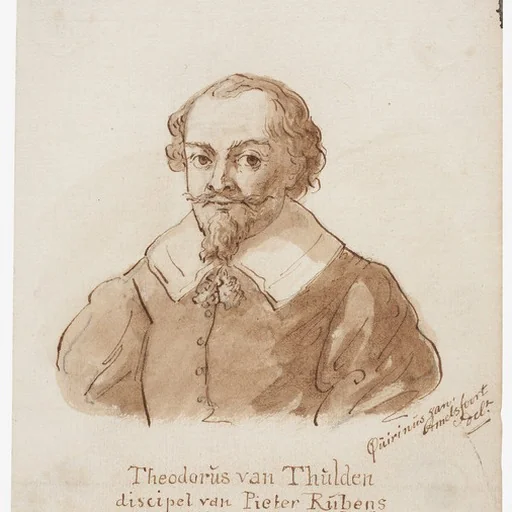 Quirinus van
Amelsfoort
delt.
Theodorŭs van Thŭlden
discipel van Pieter Rŭbens